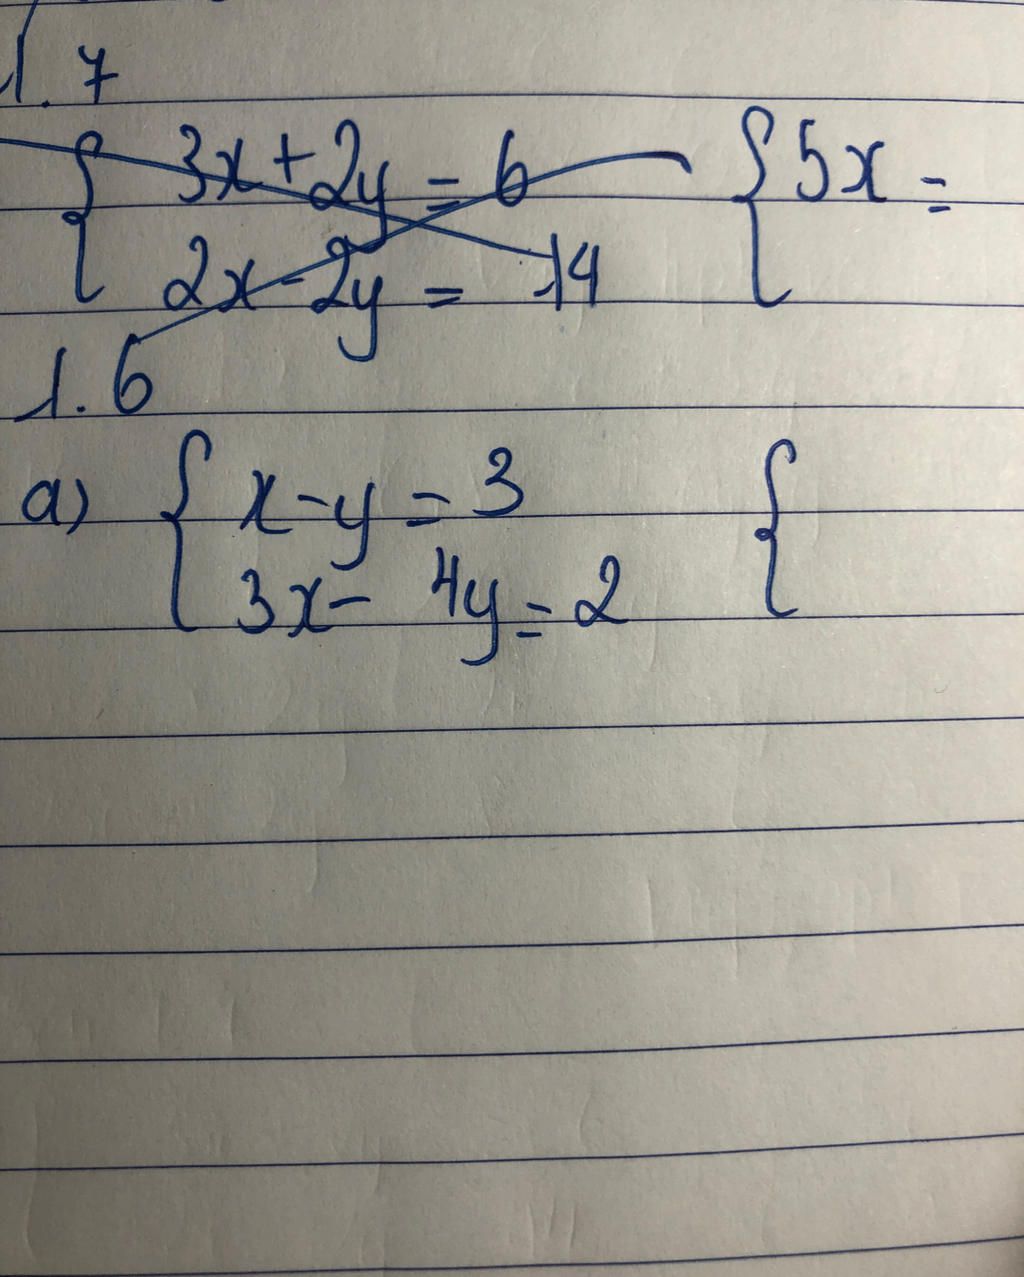 1.7
{ 3x + 2y = 6 { 5x =
2x - 2y = 14
1.6
a) { x - y = 3 {
3x - 4y = 2